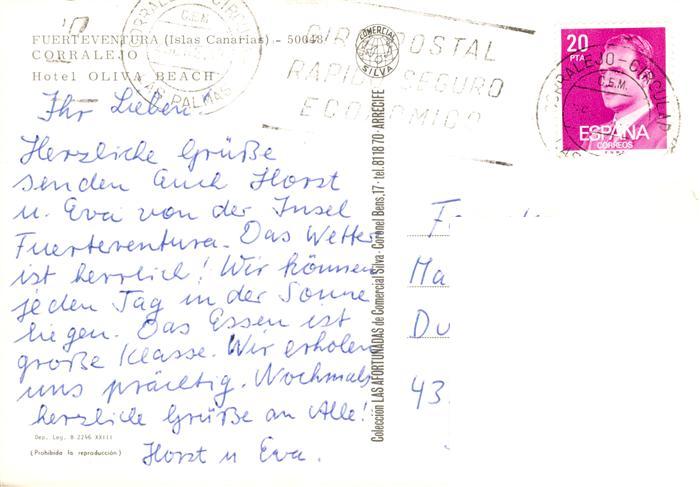 FUERTEVENTURA (Islas Canarias) - 50048
CORRALEJO
Hotel OLIVA BEACH
Ihr Lieben!
Herzliche Grüße
senden Euch Horst
u. Eva von der Insel
Fuerteventura. Das Wetter
ist herrlich! Wir können
jeden Tag in der Sonne
liegen. Das Essen ist
große Klasse. Wir erholen
uns prächtig. Nochmals
herzliche Grüße an Alle!
Horst u Eva.
Dep. Leg. B 2246 XXIII
(Prohibida la reproducción)
Colección LAS AFORTUNADAS de Comercial Silva - Coronel Bens, 17 - tel. 81 18 70 - ARRECIFE
COMERCIAL
SILVA
POSTAL
RAPIDO SEGURO
ECONOMICO
CORRALEJO-CIRCULAR
C.E.M.
LAS PALMAS
20
PTA
ESPAÑA
CORREOS
CORRALEJO-CIRCULAR
C.E.M.
F
Ma
Du
43